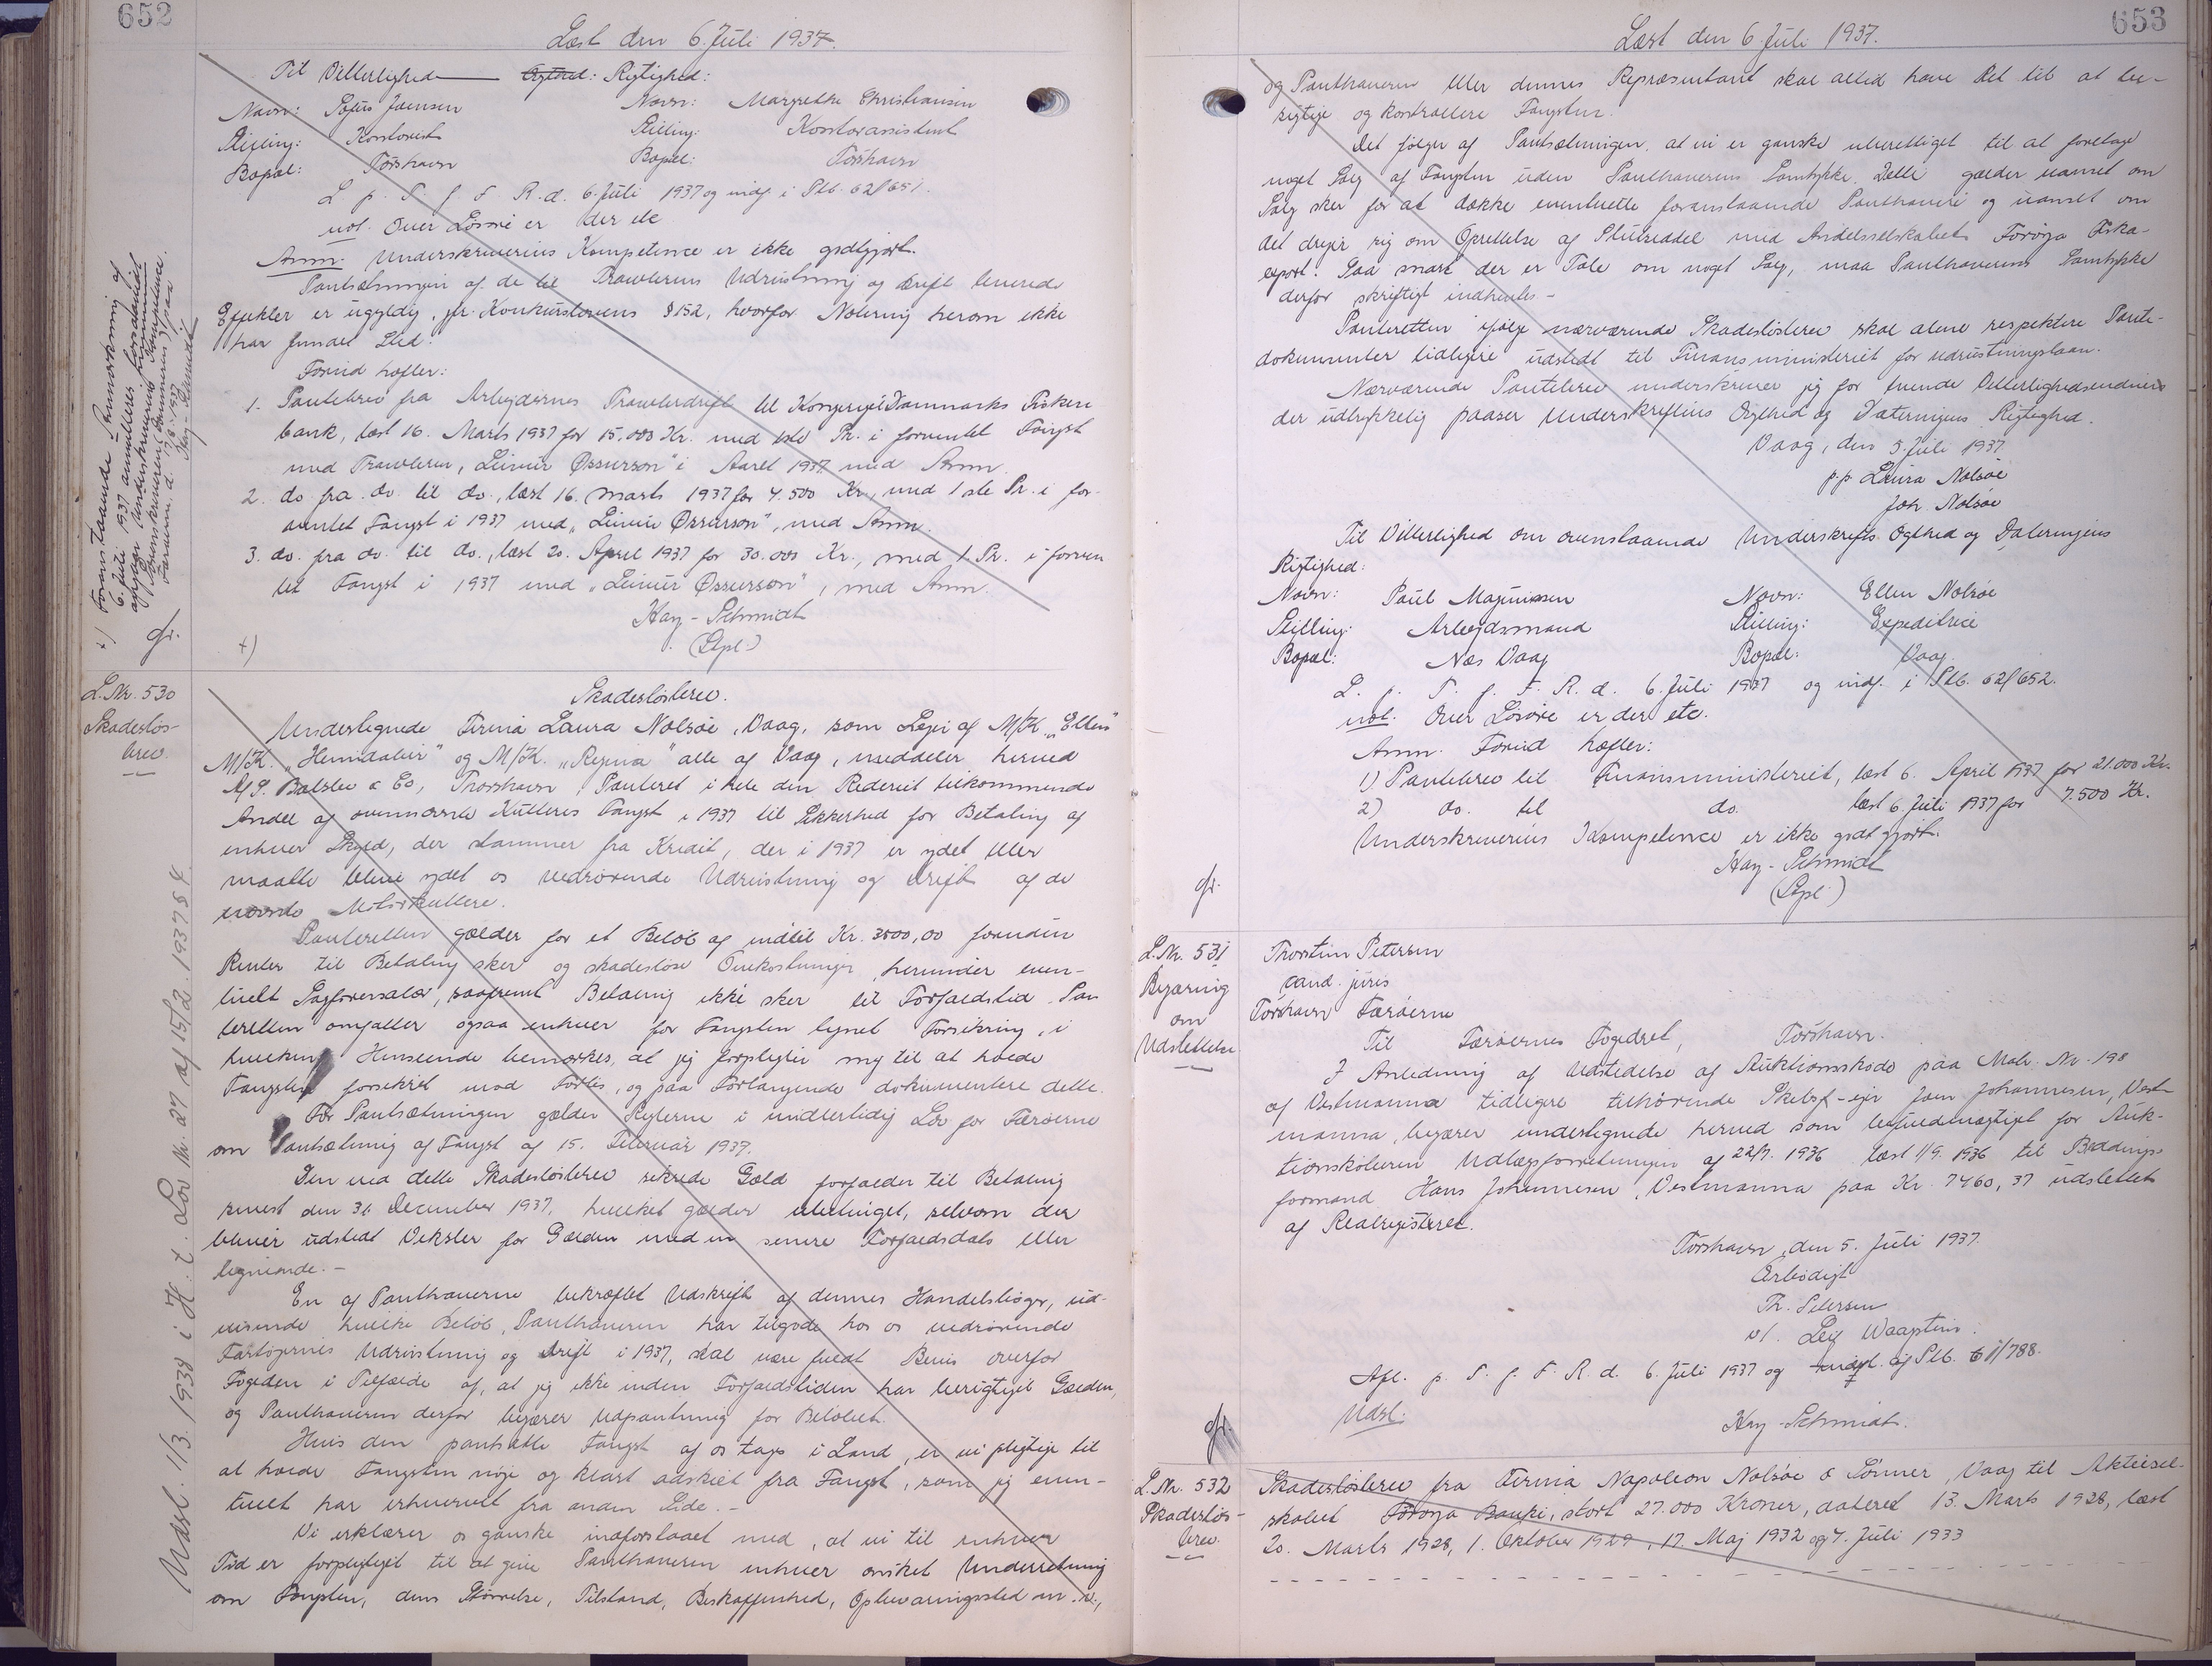 652
Læst den 6. Juli 1937.
Til Vitterlighed Ægthed: Rigtighed:
Navn: Sofus Joensen Navn: Margrethe Christiansen
Stilling: Kontorist Stilling: Kontorassistent
Bopæl: Tórshavn Bopæl: Tórshavn
L. p. T. f. F. R. d. 6. Juli 1937 og indf. i Ptb. 62/651.
vol. over Løsøre er der etc
Anm. Underskriverens Kompetence er ikke godtgjort.
Pantsætningen af de til Trawlerens Udrustning og Drift leverede
Effekter er ugyldig, jfr. Konkurslovens § 152, hvorfor Notering herom ikke
har fundet Sted.
Forud hæfter:
1. Pantebrev fra Arbejdernes Trawlerdrift til Kongeriget Danmarks Fiskeri
bank, læst 16. Marts 1937 for 15.000 Kr. med 1ste Pr. i forventet Fangst
med Trawleren "Leivur Øssurson" i Aaret 1937 med Anm.
2. do. fra do. til do., læst 16. Marts 1937 for 7.500 Kr., med 1ste Pr. i for-
ventet Fangst i 1937 med "Leivur Øssurson", med Anm.
3. do. fra do. til do., læst 20. April 1937 for 30.000 Kr., med 1. Pr. i forven
tet Fangst i 1937 med "Leivur Øssurson", med Anm.
Kay-Schmidt
(Stpl.)
+)
+) Foranstaaende Anmærkning af
6. Juli 1937 annulleres, forsaavidt
angaar Underskriverens Kompetence.
Færøerne d. 17/8. 1937
Kay-Schmidt
gr.
L. Nr. 530
Skadesløs-
brev.
Skadesløsbrev.
Undertegnede Firma Laura Nolsøe, Vaag, som Ejer af M/K. "Ellen"
M/K. "Heimdalur" og M/K. "Regina" alle af Vaag, meddeler herved
A/S. Balslev & Co, Thorshavn, Panteret i hele den Rederiet tilkommende
Andel af ovennævnte Kutteres Fangst i 1937 til Sikkerhed for Betaling af
enhver Skyld, der stammer fra Kredit, der i 1937 er ydet eller
maatte blive ydet os vedrørende Udrustning og Drift af de
nævnte Motorkuttere.
Panteretten gælder for et Beløb af indtil Kr. 3500,00 foruden
Renter til Betaling sker og skadesløse Omkostninger, herunder even-
tuelt Sagførersalær, saafremt Betaling ikke sker til Forfaldstid. Pan
teretten omfatter ogsaa enhver for Fangsten tegnet Forsikring, i
hvilken Henseende bemærkes, at jeg forpligter mig til at holde
Fangsten forsikret mod Forlis, og paa Forlangende dokumentere dette.
For Pantsætningen gælder Reglerne i midlertidig Lov for Færøerne
om Pantsætning af Fangst af 15. Februar 1937.
Den ved dette Skadesløsbrev sikrede Gæld forfalder til Betaling
senest den 31. December 1937, hvilket gælder ubetinget, selvom der
bliver udstedt Veksler for Gælden med en senere Forfaldsdato eller
lignende.-
En af Panthaverne bekræftet Udskrift af dennes Handelsbøger, ud-
visende hvilke Beløb, Panthaveren har tilgode hos os vedrørende
Fartøjernes Udrustning og Drift i 1937, skal være fuldt Bevis overfor
Fogeden i Tilfælde af, at jeg ikke inden Forfaldstiden har berigtiget Gælden,
og Panthaveren derfor begærer Udpantning for Beløbet.
Hvis den pantsatte Fangst af os tages i Land, er vi pligtige til
at holde Fangsten nøje og klart adskilt fra Fangst, som jeg even-
tuelt har erhvervet fra anden Side.-
Vi erklærer os ganske indforstaaet med, at vi til enhver
Tid er forpligtet til at give Panthaveren enhver ønsket Underretning
om Fangsten, dens Størrelse, Tilstand, Beskaffenhed, Opbevaringssted m.v.,
Udsl. 1/3. 1938 i H. t. Lov Nr. 27 af 15/2. 1937 § 4.
653
Læst den 6. Juli 1937.
og Panthaveren eller dennes Repræsentant skal altid have Ret til at be-
sigtige og kontrollere Fangsten.
Det følger af Pantsætningen, at vi er ganske uberettiget til at foretage
noget Salg af Fangsten uden Panthaverens Samtykke. Dette gælder uanset om
Salg sker for at dække eventuelle foranstaaende Panthavere og uanset om
det drejer sig om Oprettelse af Slutseddel med Andelsselskabet Føroya Fiska-
export. Saa snart der er Tale om noget Salg, maa Panthaverens Samtykke
derfor skriftligt indhentes-
Panteretten ifølge nærværende Skadesløsbrev skal alene respektere Pante-
dokumenter tidligere udstedt til Finansministeriet for Udrustningslaan.
Nærværende Pantebrev underskriver jeg for tvende Vitterlighedsvidner
der udtrykkelig paaser Underskriftens Ægthed og Dateringens Rigtighed.
Vaag, den 5. Juli 1937.
p.p. Laura Nolsøe
Joh. Nolsøe
Til Vitterlighed om ovenstaaende Underskrifts Ægthed og Dateringens
Rigtighed:
Navn: Poul Magnussen Navn: Ellen Nolsøe
Stilling: Arbejdsmand Stilling: Expeditrice
Bopæl: Nes Vaag Bopæl: Vaag.
L. p. T. f. F. R. d. 6. Juli 1937 og indf. i Ptb. 62/652.
vol. over Løsøre er der etc.
Anm. Forud hæfter:
1) Pantebrev til Finansministeriet, læst 6. April 1937 for 21.000 Kr.
2) do. til do. læst 6. Juli 1937 for 7.500 Kr.
Underskriverens Kompetence er ikke godtgjort.
Kay-Schmidt
(Stpl.)
gr.
L. Nr. 531
Begæring
om
Udslettelse
Thorstein Petersen
cand. juris
Tórshavn Færøerne
Til Færøernes Fogedret, Tórshavn.
I Anledning af Udstedelse af Auktionsskøde paa Matr. Nr. 198
af Vestmanna tidligere tilhørende Skibsf-ejer Joen Johannesen, Vest-
manna, begærer undertegnede herved som befuldmægtiget for Auk-
tionskøberen Udlægsforretningen af 22/7. 1936 læst 1/9. 1936 til Beddings-
formand Hans Johannesen, Vestmanna paa Kr. 7460,37 udslettet
af Realregisteret.
Tórshavn, den 5. Juli 1937.
Ærbødigt
Th. Petersen
v/. Leif Waagstein.
Afl. p. T. f. F. R. d. 6. Juli 1937 og indf. i Ptb. 61/788.
Udsl. Kay-Schmidt.
gr.
L. Nr. 532
Skadesløs-
brev.
Skadesløsbrev fra Firma Napoleon Nolsøe & Sønner, Vaag til Aktiesel-
skabet Føroya Banki, stort 27.000 Kroner, dateret 13. Marts 1928, læst
20. Marts 1928, 1. Oktober 1929, 17. Maj 1932 og 4. Juli 1933